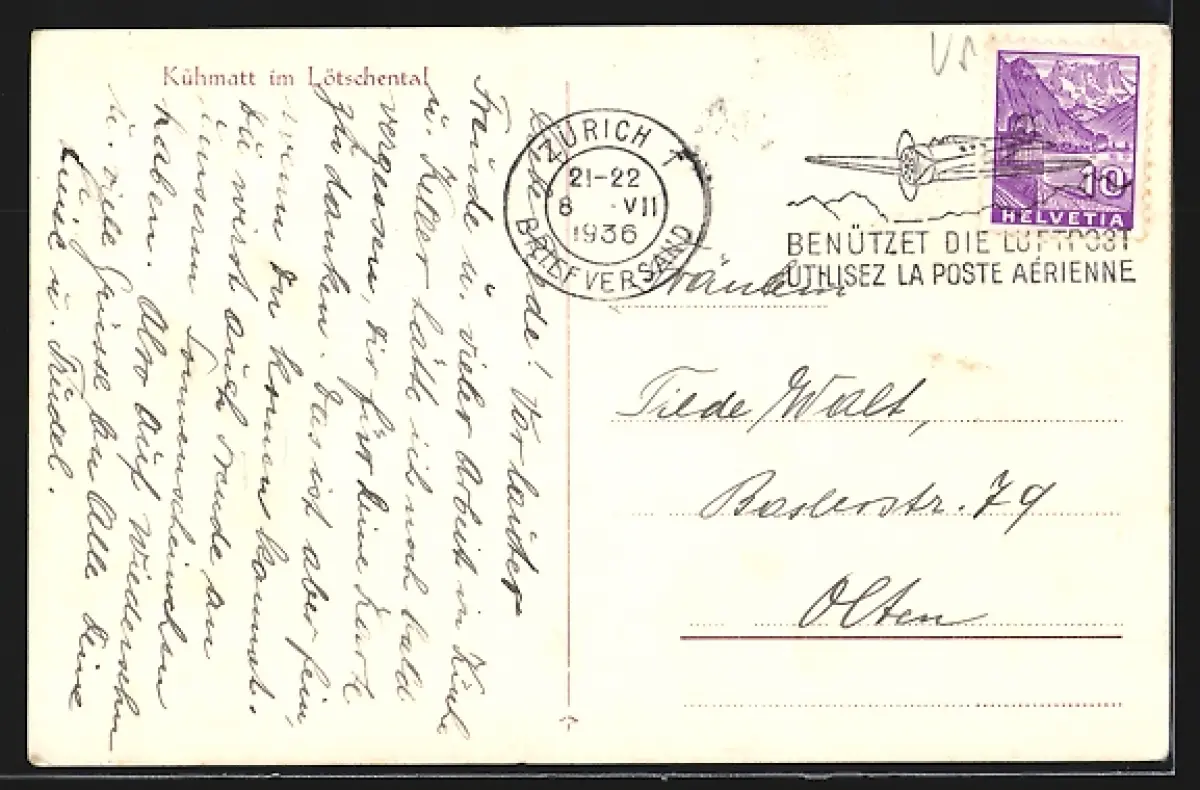 Kühmatt im Lötschental
Liebe Tilde! Vor lauter
Freude u. vieler Arbeit in Küche
u. Keller hätte ich noch bald
vergessen, dir für Deine Karte
zu danken. Das ist aber fein,
wenn Du kommen kannst.
Du wirst auch Freude an
unserem Sonnenscheinchen
haben. Also auf Wiedersehn
u. viele Grüsse an Alle Deine
u. Trudel.
ZÜRICH 1
21-22
8 VII
1936
BRIEFVERSAND
BENÜTZET DIE LUFTPOST
UTILISEZ LA POSTE AÉRIENNE
10
HELVETIA
Fräulein
Tilde Walt,
Baslerstr. 79
Olten